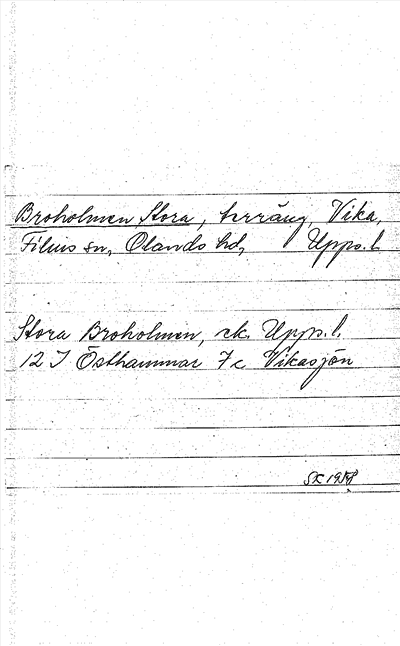 Broholmen, Stora, terräng, Vika,
Films sn, Olands hd, Upps. l.
Stora Broholmen, ek. Upps. l.
12 I Östhammar 7 c Vikasjön
SK